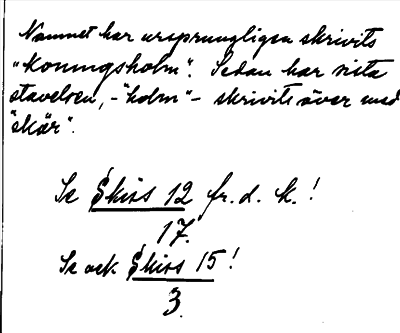 Namnet har ursprungligen skrivits
"Koningsholm". Sedan har sista
stavelsen, - "holm" - skrivits över med
"skär".
Se Skiss 12 fr. d. k.!
17.
Se ock Skiss 15!
3.